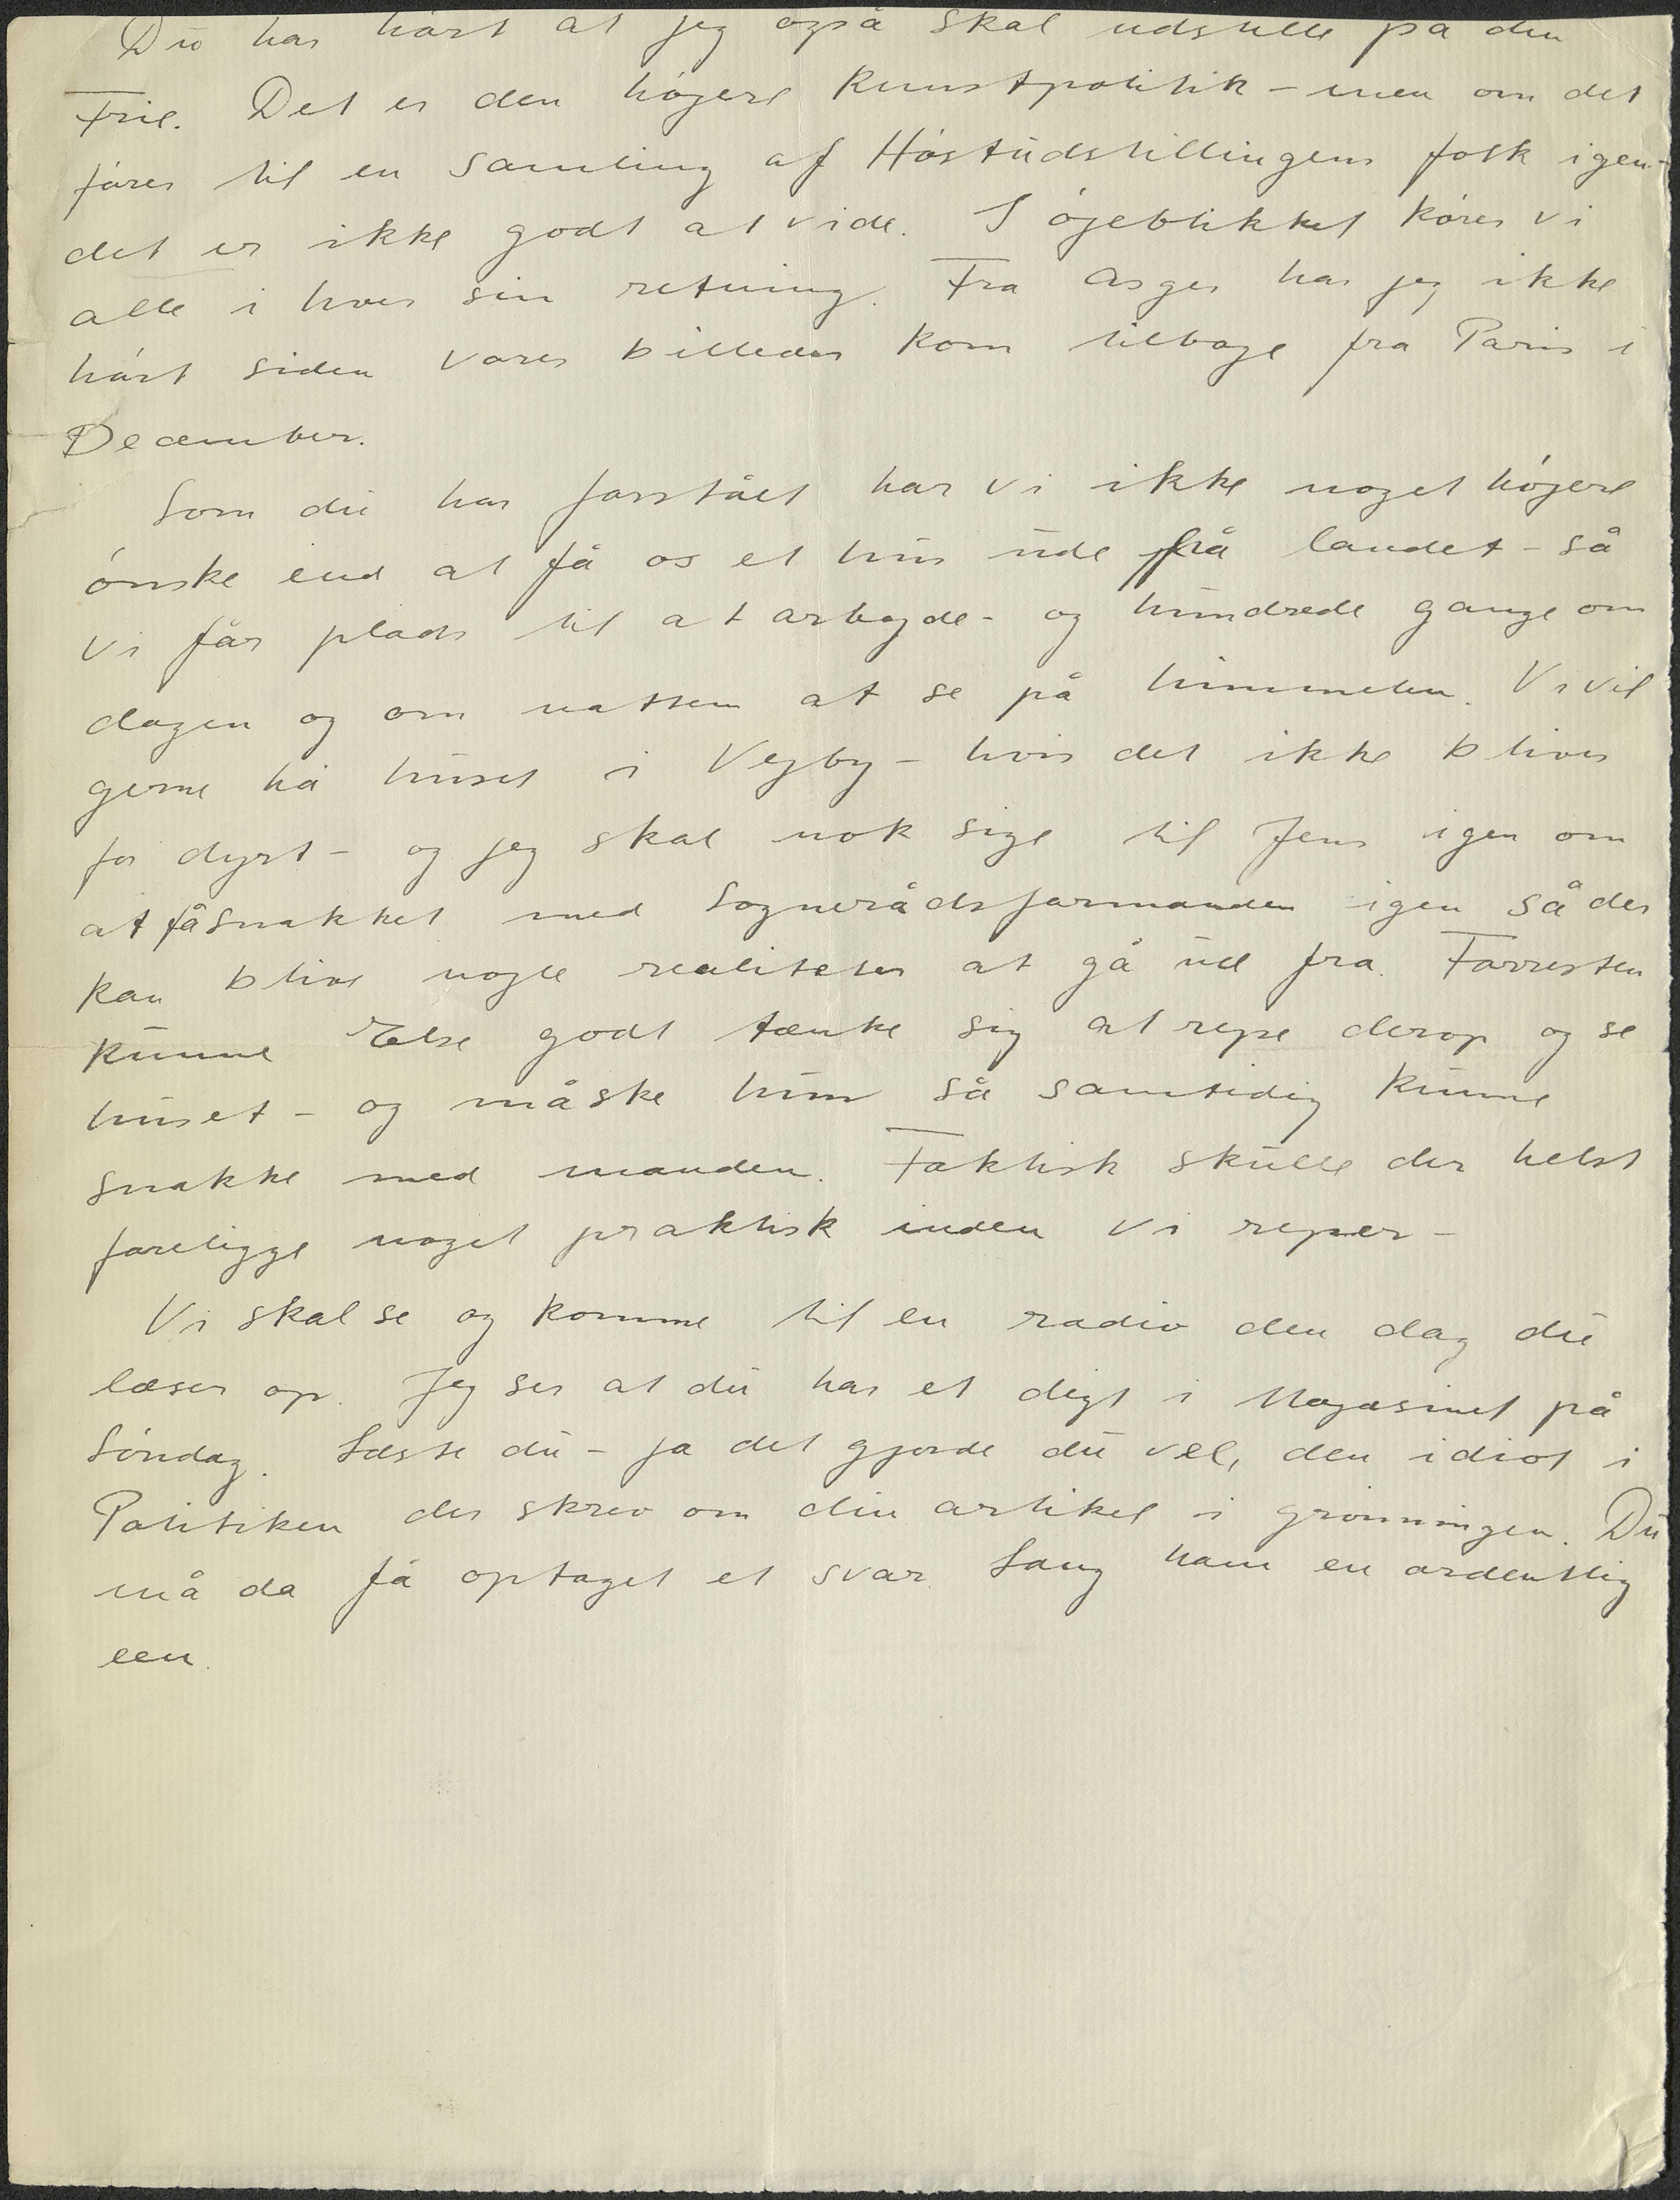 Du har hört at jeg også skal udstille på den
Frie. Det er den højere Kunstpolitik – men om det
fører til en samling af Høstudstillingens folk igen –
det er ikke godt at vide. I øjeblikket kører vi
alle i hver sin retning. Fra Asger har jeg ikke
hørt siden vores billeder kom tilbage fra Paris i
December.
Som du har forstået har vi ikke noget højere
ønske end at få os et hus ude på landet – så
vi får plads til at arbejde – og hundrede gange om
dagen og om natten at se på himmelen. Vi vil
gerne há huset i Vejby – hvis det ikke bliver
for dyrt – og jeg skal nok sige til Jens igen om
at få snakket med Sognerådsformanden igen så der
kan blive nogle realiteter at gå ud fra. Forresten
kunne Else godt tænke sig at rejse derop og se
huset – og måske hun så samtidig kunne
snakke med manden. Faktisk skulle der helst
foreligge noget praktisk inden vi rejser –
Vi skal se og komme til en radio den dag du
læser op. Jeg ser at du har et digt i Magasinet på
Søndag. Læste du – ja det gjorde du vel, den idiot i
Politiken der skrev om din artikel i grønningen. Du
må da få optaget et svar. Lang ham en ordentlig
een.